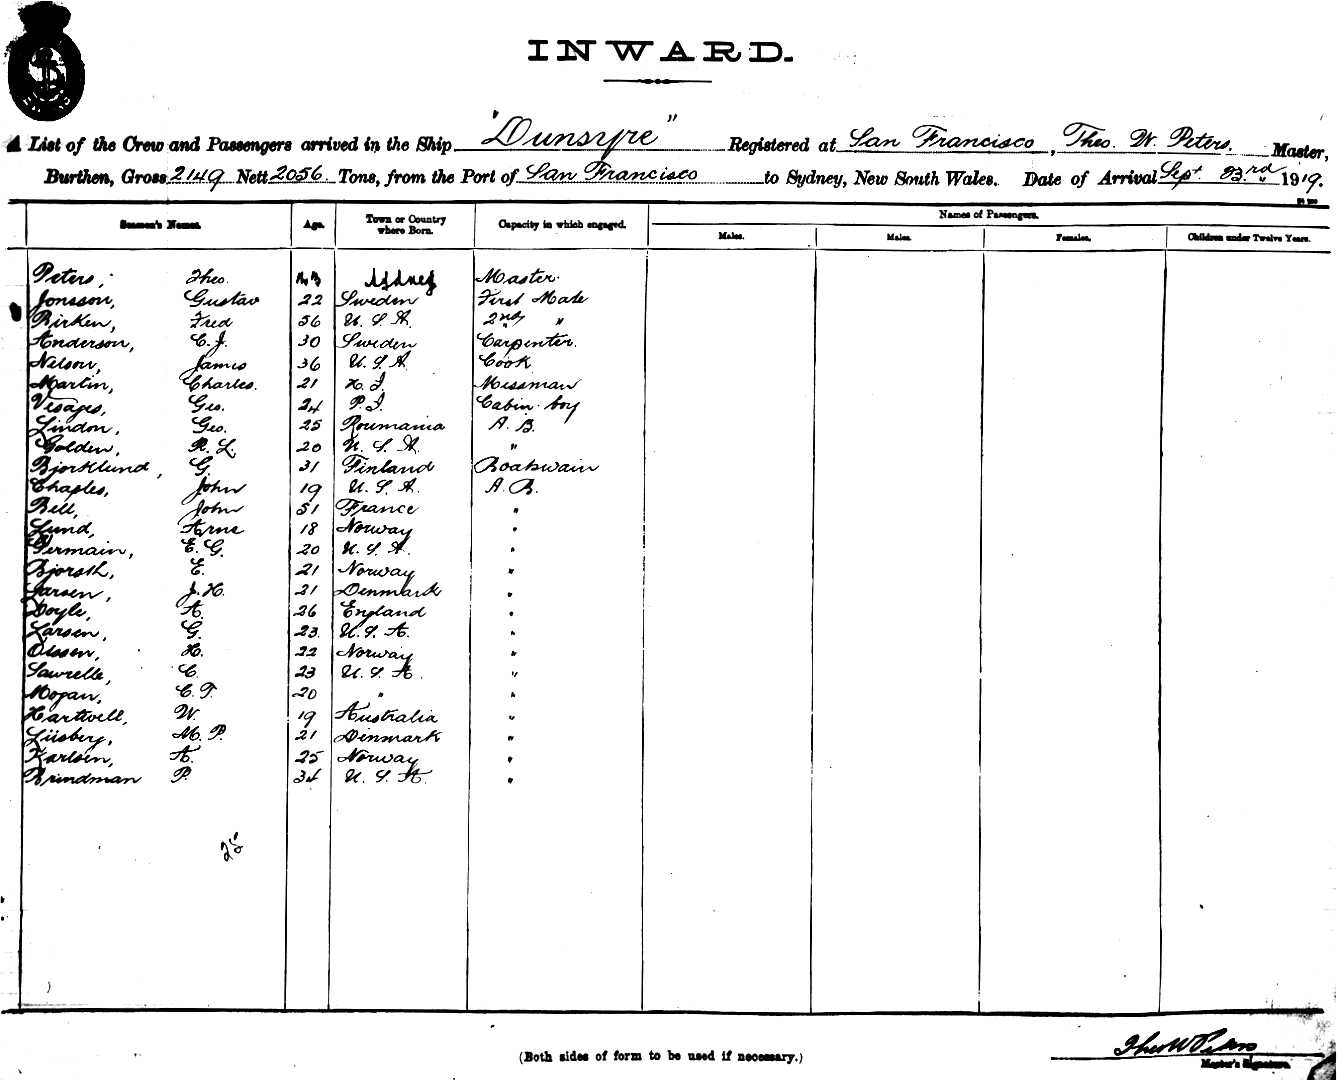 INWARD.
A List of the Crew and Passengers arrived in the Ship "Dunsyre" Registered at San Francisco, Theo. W. Peters. Master,
Burthen, Gross 2149 Nett 2056 Tons, from the Port of San Francisco to Sydney, New South Wales. Date of Arrival Sept. 23rd 1919.
Seamen's Names. Age. Town or Country where Born. Capacity in which engaged. Names of Passengers.
Males. Males. Females. Children under Twelve Years.
Peters, Theo. Sydney Master
Jonsson, Gustav 22 Sweden First Mate
Birken, Fred 56 U. S. A. 2nd "
Anderson, C. J. 30 Sweden Carpenter.
Nelson, James 36 U. S. A. Cook
Martin, Charles. 21 H. I. Messman
Visages, Geo. 24 P. I. Cabin boy
Lindon, Geo. 25 Roumania A. B.
Golden, R. L. 20 U. S. A. "
Bjorklund, G. 31 Finland Boatswain
Chaples, John 19 U. S. A. A. B.
Bell, John 51 France "
Lund, Arne 18 Norway "
Germain, E. G. 20 U. S. A. "
Bjorsth, E. 21 Norway "
Larsen, J. H. 21 Denmark "
Doyle, A. 26 England "
Larsen, G. 23 U. S. A. "
Olssen, H. 22 Norway "
Sawrelle, C. 23 U. S. A. "
Mogan, C. T. 20 " "
Hartwell, W. 19 Australia "
Liisberg, M. P. 21 Denmark "
Karlsen, A. 25 Norway "
Brindman P. 34 U. S. A. "
25
(Both sides of form to be used if necessary.)
Theo W Peters
Master's Signature.